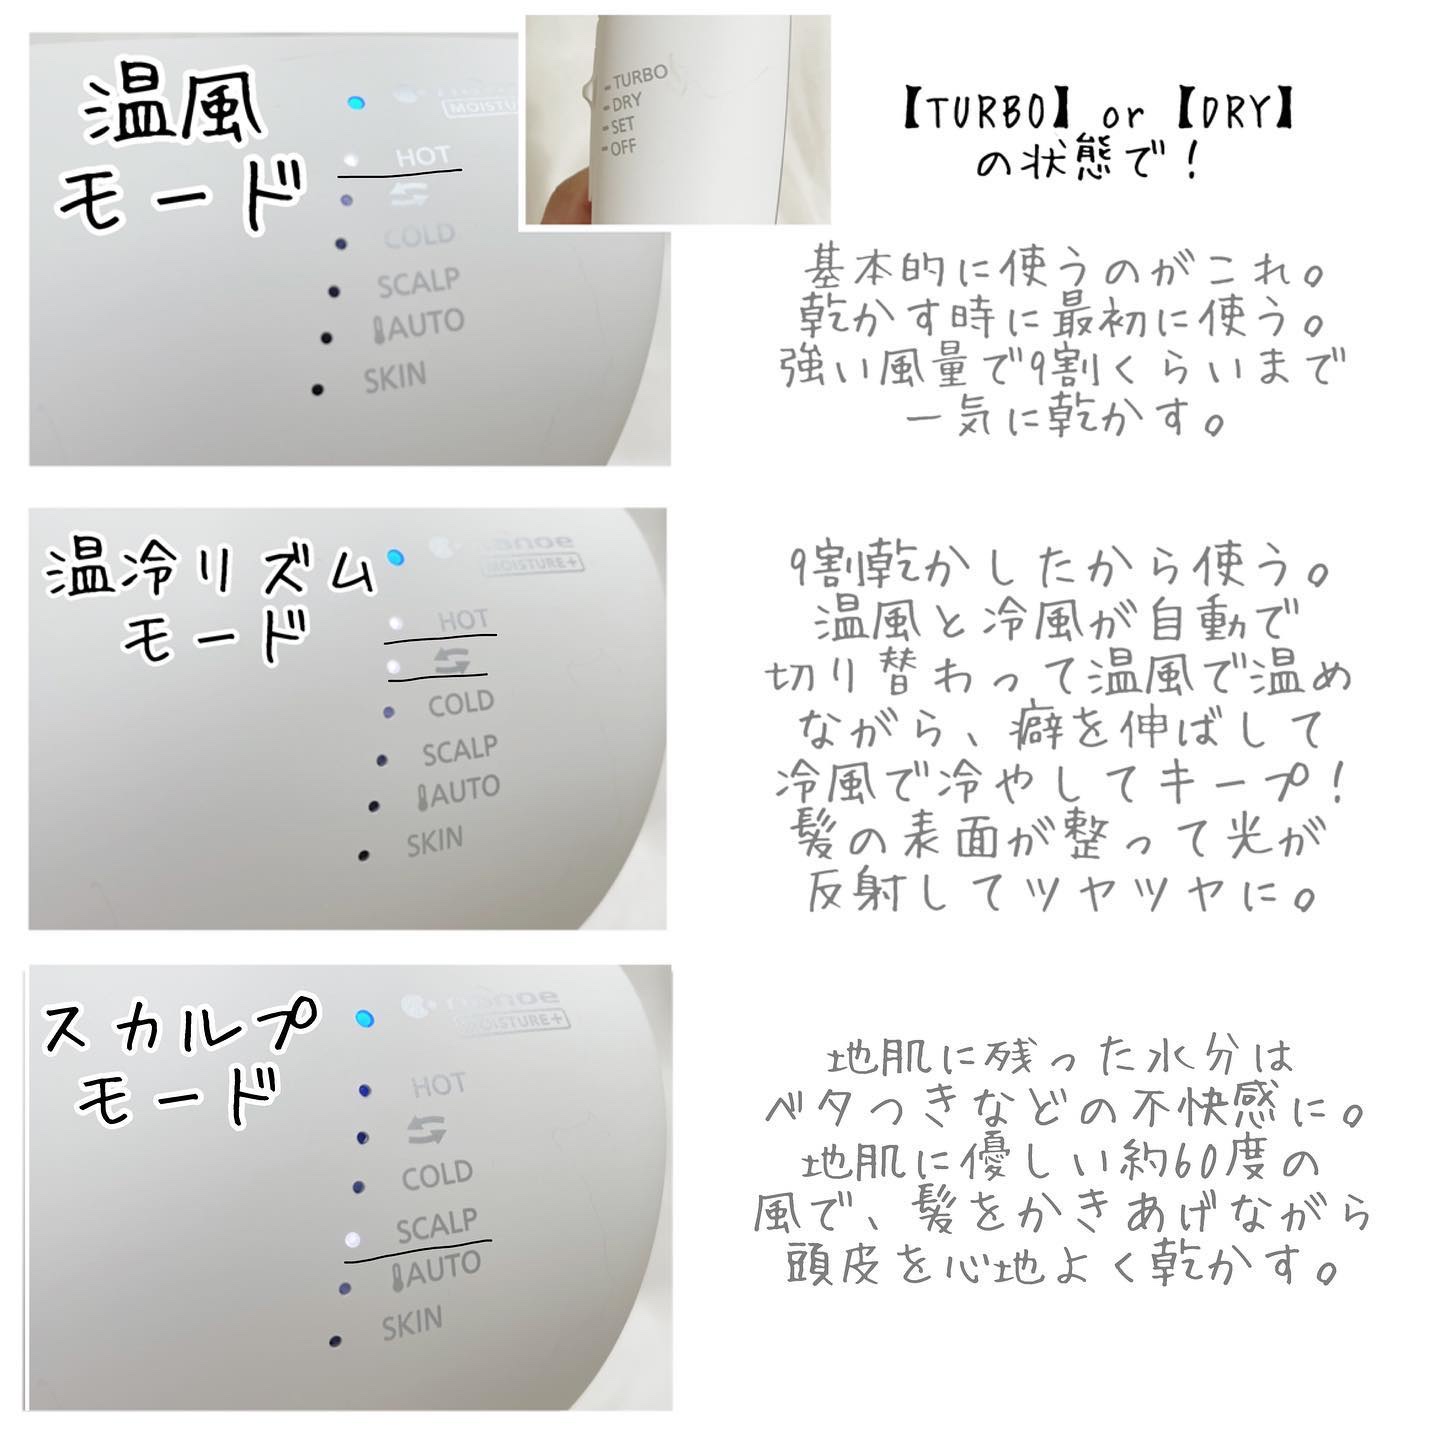 温風
モード
MOISTU
HOT
COLD
SCALP
AUTO
SKIN
TURBO
DRY
SET
OFF
【TURBO】or【DRY】
の状態で！
基本的に使うのがこれ。
乾かす時に最初に使う。
強い風量で9割くらいまで
一気に乾かす。
温冷リズム
モード
nanoe
MOISTURE+
HOT
COLD
SCALP
AUTO
SKIN
9割乾かしたから使う。
温風と冷風が自動で
切り替わって温風で温め
ながら、癖を伸ばして
冷風で冷やしてキープ！
髪の表面が整って光が
反射してツヤツヤに。
スカルプ
モード
nanoe
MOISTURE+
HOT
COLD
SCALP
AUTO
SKIN
地肌に残った水分は
ベタつきなどの不快感に。
地肌に優しい約60度の
風で、髪をかきあげながら
頭皮を心地よく乾かす。